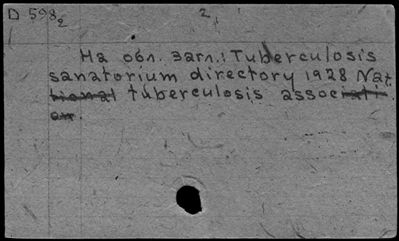 D 598₂ 2.
На обл. загл.: Tuberculosis
sanatorium directory 1928 Nat.
tional tuberculosis association
on.